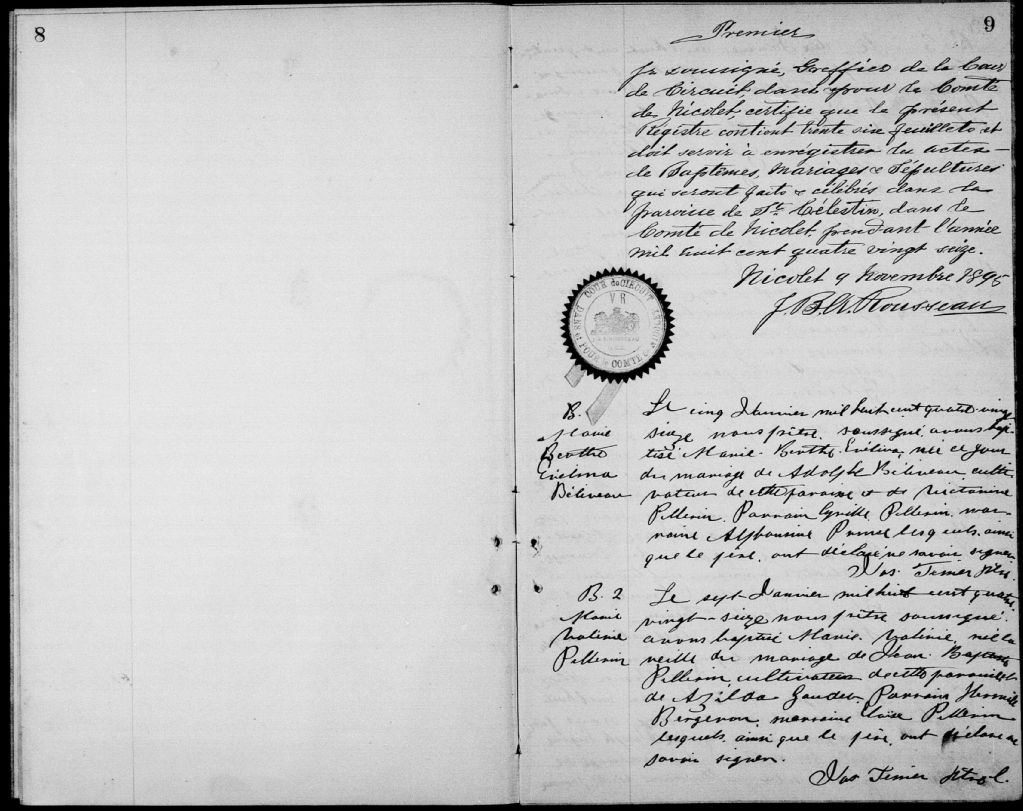 8
9
Premier
Je soussigné, Greffier de la Cour
de Circuit, dans & pour le Comté
de Nicolet, certifie que le présent
Régistre contient trente six feuillets et
doit servir à enrégistrer les actes
de Baptêmes, Mariages & Sépultures
qui seront faits & célébrés dans la
paroisse de St. Célestin, dans le
Comté de Nicolet, pendant l'année
mil huit cent quatre vingt seize.
Nicolet 9 Novembre 1895
Rousseau
COUR de CIRCUIT
DANS et POUR le COMTÉ
VR
B.
Marie
Berthe
Evélina
Béliveau
Le cinq Janvier mil huit cent quatre-vingt
seize nous prêtre soussigné avons bap-
tisé Marie Berthe Evélina, née ce jour
du mariage de Adolphe Béliveau culti-
vateur de cette paroisse et de
Pellerin. Parrain Cyrille Pellerin, mar-
raine Alphonsine lesquels, ainsi
que le père, ont déclaré ne savoir signer.
Tessier Ptre
B. 2
Marie
Valérie
Pellerin
Le sept Janvier mil huit cent quatre
vingt-seize nous prêtre soussigné
avons baptisé Marie Valérie, née la
veille du mariage de Jean Baptiste
Pellerin, cultivateur de cette paroisse et
de Azilda Gaudet. Parrain
Bergeron, marraine Pellerin
lesquels, ainsi que le père, ont déclaré ne
savoir signer.
Tessier Ptre